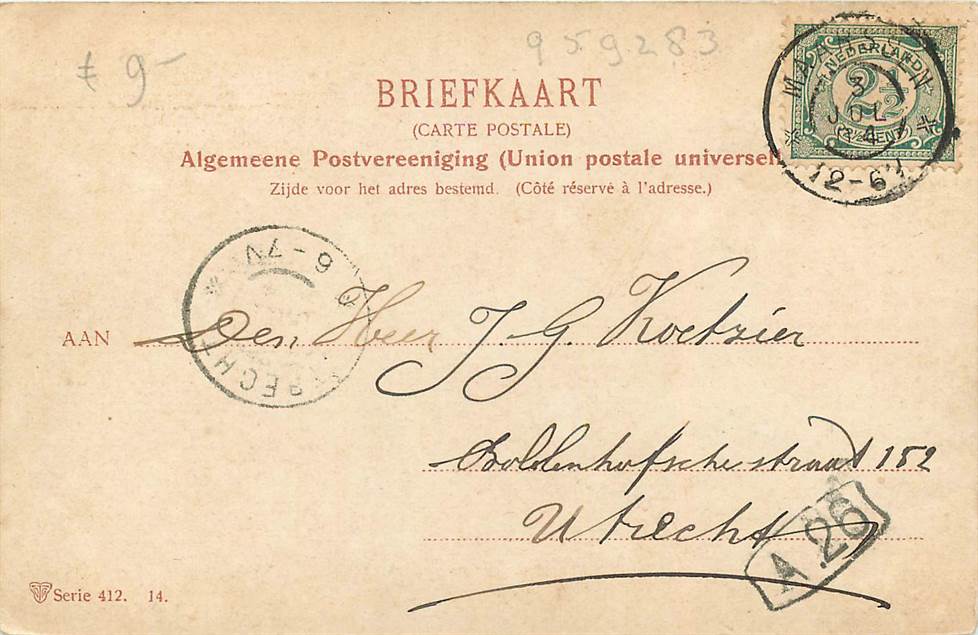 € 9-
959283
NEDERLAND
2½
(2½ CENT)
3
JUL
4
12-6
BRIEFKAART
(CARTE POSTALE)
Algemeene Postvereeniging (Union postale universel
Zijde voor het adres bestemd. (Côté réservé à l'adresse.)
6-7V
RECHT
AAN Den Heer J. G. Koetzier
straat 152
Utrecht
A 26
Serie 412. 14.